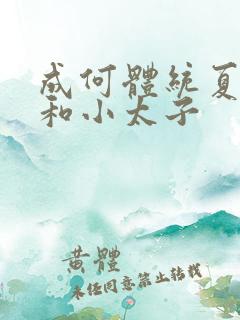 成何體統夏
和小太子
黄體
未经同意禁止转载